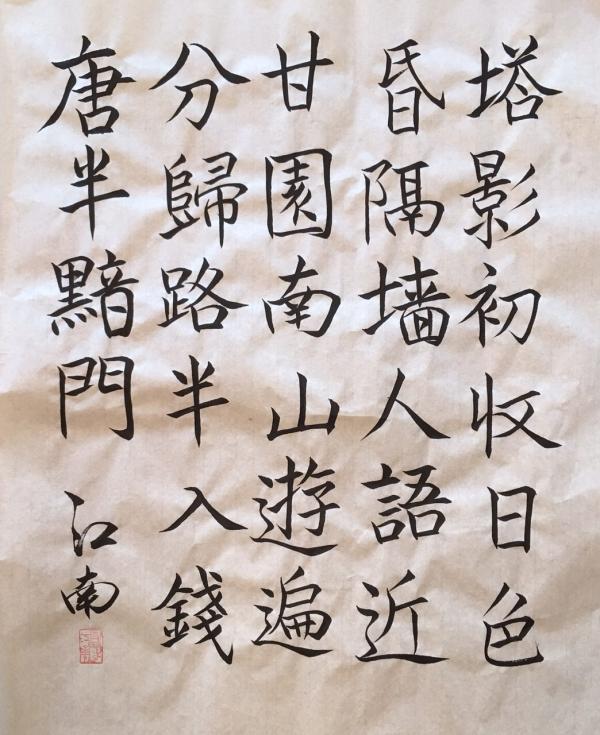 塔影初收日色
昏隔墙人語近
甘園南山遊遍
分歸路半入錢
唐半黯門
江南